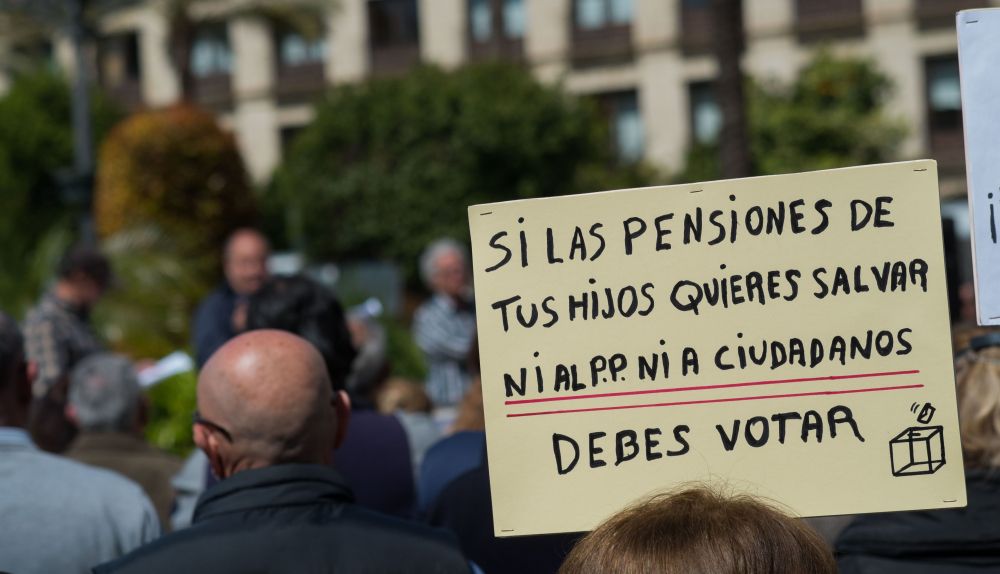 Si LAS PENSiONES DE
TUS HiJOS QUiERES SALVAR
Ni AL P.P. Ni A CiUDADANOS
DEBES VOTAR